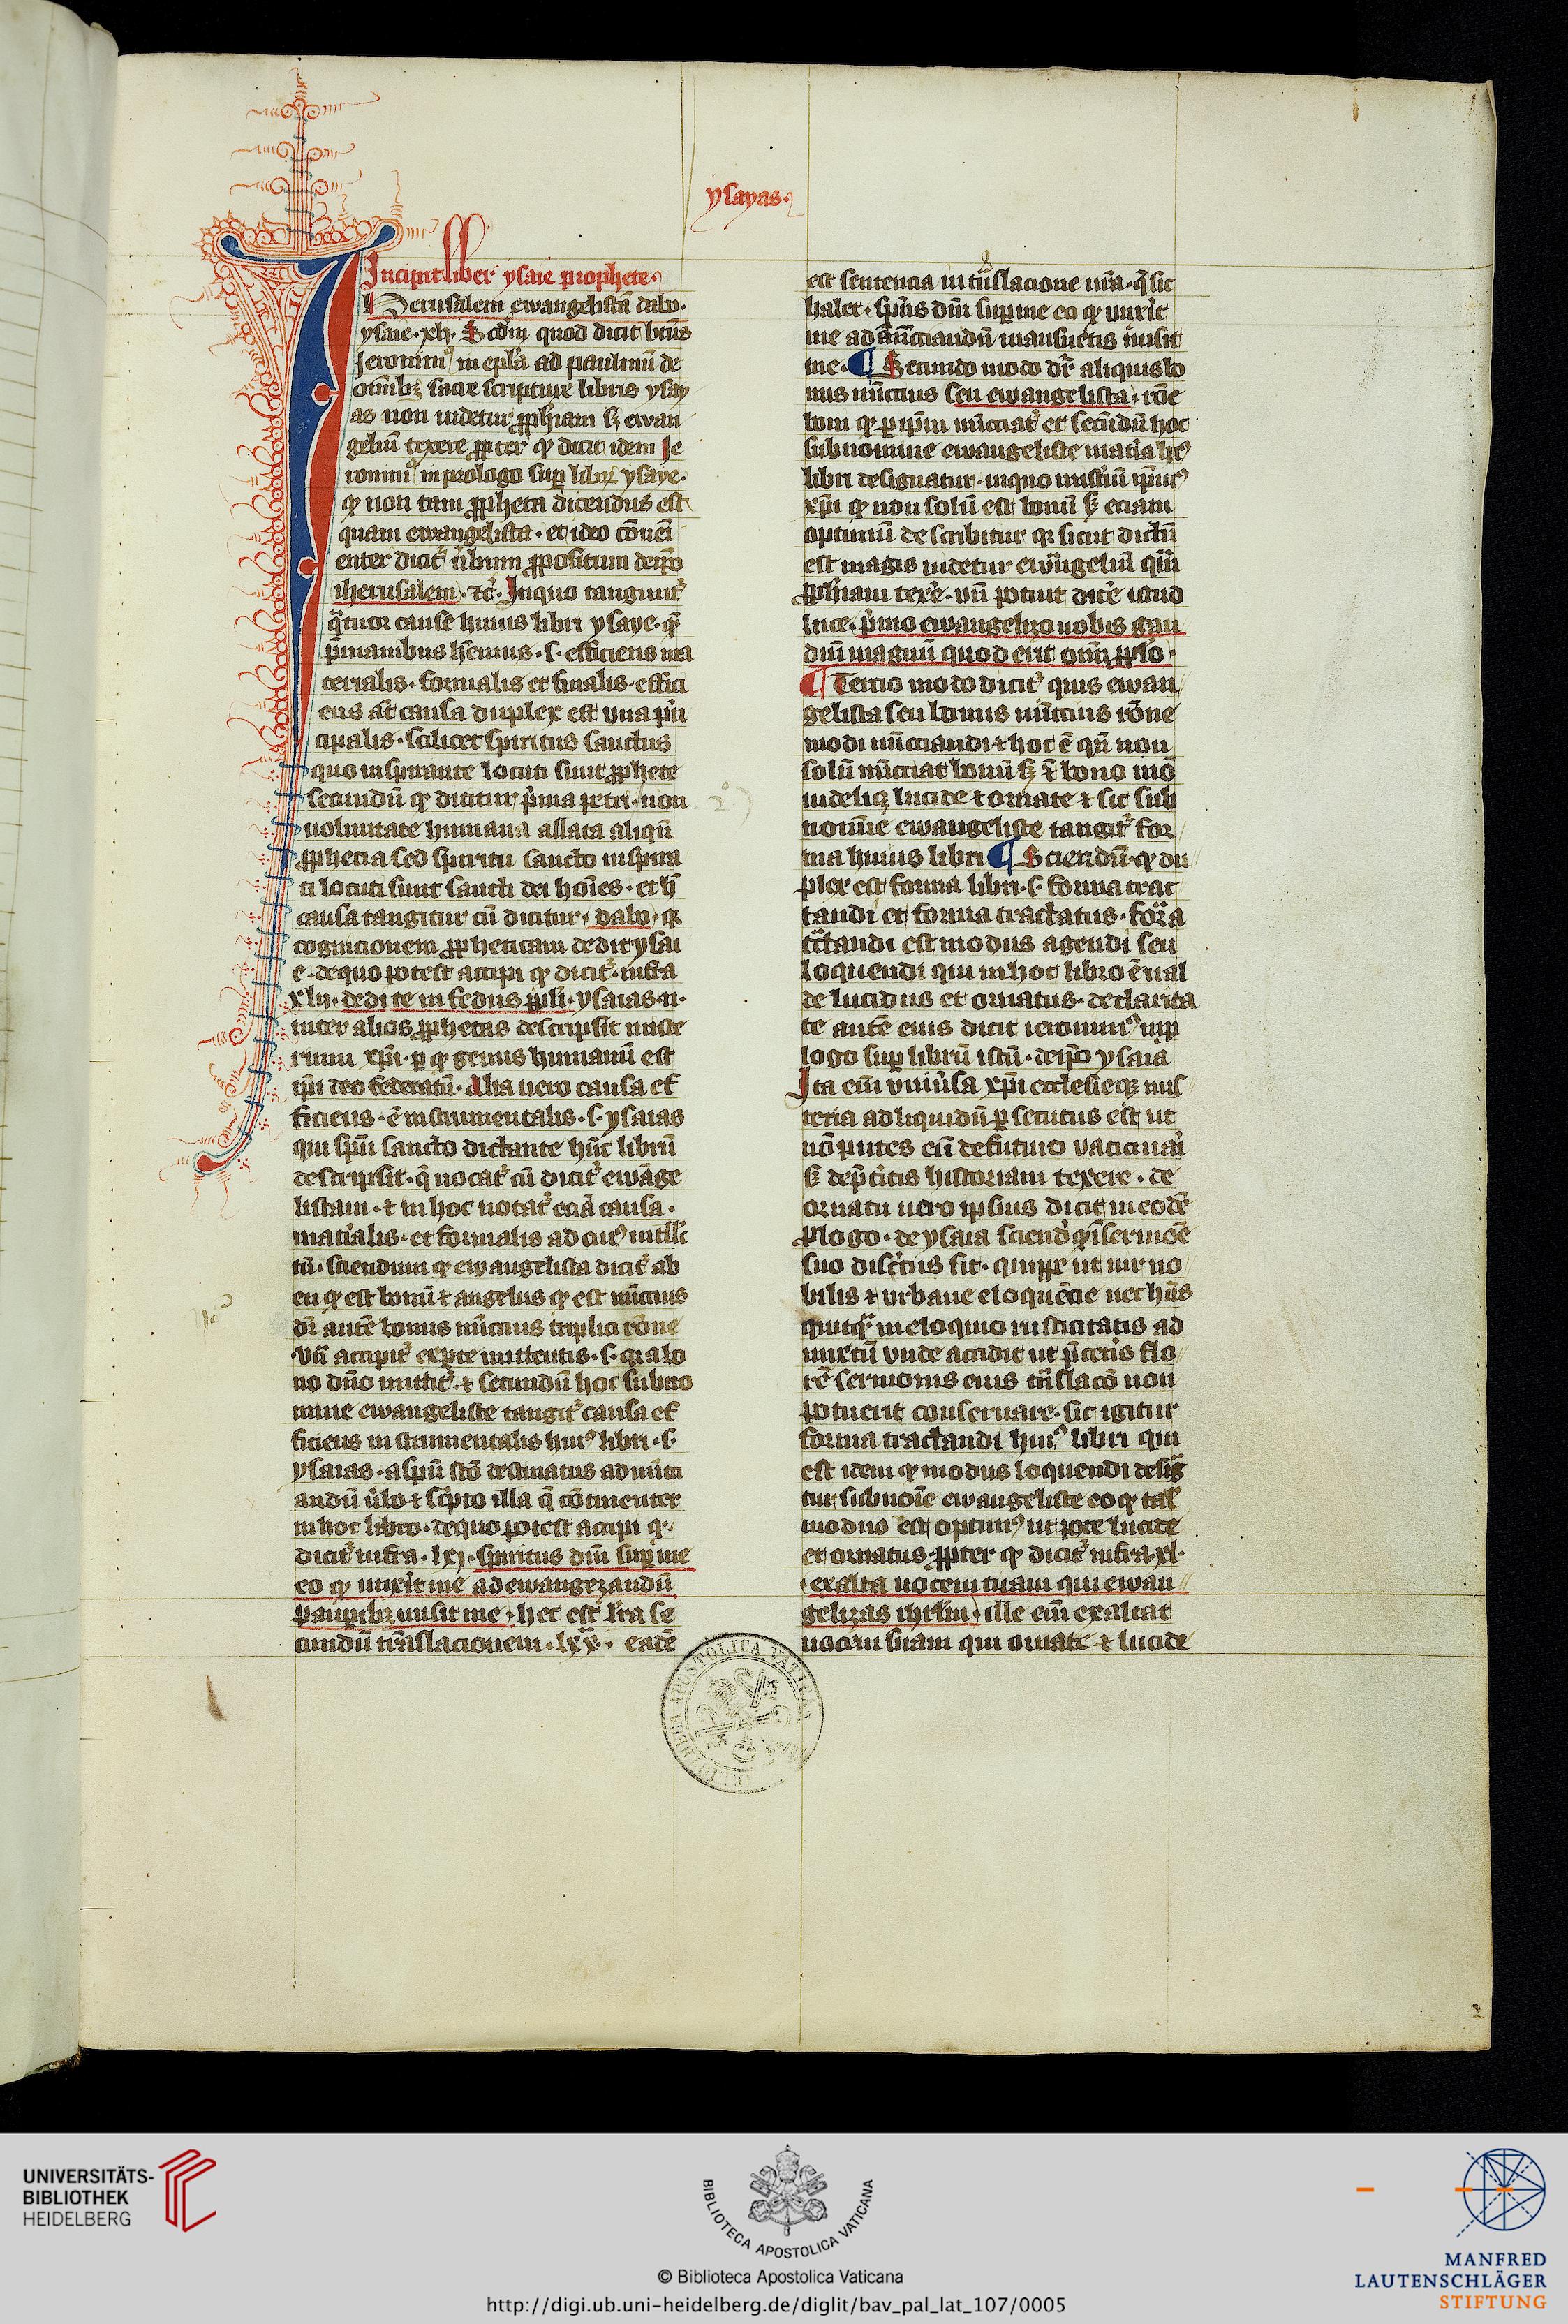 ysayas.
Incipit liber ysaie prophete.
Iherusalem ewangelistā dabo.
ysaie .xli. Scdm quod dicit btūs
Jeronimꝰ in epl'a ad paulinū de
omībꝫ sacre scripture libris ysay
as non uidetur ꝓphiam sꝫ ewan
geliū texere ꝓpter qꝫ dicit idem Je
ronimꝰ in prologo suꝑ libꝝ ysaye.
qꝫ non tam ꝓpheta dicendus est
quam ewangelista. et ideo cōueni
enter dicit᷑ ūbum ꝓpositum de ipō
iherusalem. ⁊c̄. In quo tangunt᷑
qͣtuor cause huius libri ysaye. qͣs
p̄manibus hēmus .s. efficiens ma
terialis. formalis et finalis. effici
ens āt causa duplex est vna pͥn
cipalis. scilicet spiritus sanctus
quo inspirante locuti sunt ꝓphete
secundū qꝫ dicitur p̄ma petri. non
uoluntate humana allata aliqn̄
ꝓphecia sed spiritu sancto inspira
ti locuti sunt sancti dei hoīes. et h̄
causa tangitur cū dicitur. dabo. qꝛ
cognicionem ꝓpheticam dedit ysai
e. de quo potest accipi qꝫ dicit᷑. infra
xlij. dedi te in fedus ppl'i. ysaias .n.
inter alios ꝓphetas descripsit miste
rium xpī. ꝑ qꝫ genus humanū est
ipī deo federatū. Alia uero causa ef
ficiens. ē instrumentalis .s. ysaias
qui spū sancto dictante hūc librū
descripsit. qͥ uocat᷑ cū dicit᷑ ewāge
listam. ⁊ in hoc notat᷑ eciā causa.
mat'ialis. et formalis ad cuiꝰ intll'c
tū. sciendum qꝫ ewangelista dicit᷑ ab
eu qꝫ est bonū ⁊ angelus qꝫ est nūccius
dr̄ autē bonus nūccius triplici rōne
vn̄ accipit᷑ ex ꝑte mittentis .s. qꝛ a bo
no dn̄o mittit᷑. ⁊ secundū hoc sub no
mine ewangeliste tangit᷑ causa ef
ficiens instrumentalis huiꝰ libri .s.
ysaias. a spū scō destinatus ad nūcci
andū ūbo ⁊ scͥpto illa q̄ cōtinentur
in hoc libro. de quo potest accipi qꝫ.
dicit᷑ infra. lxj. spiritus dnī suꝑ me
eo qꝫ unxit me ad ewangezandū
pauꝑibꝫ misit me. hec est lr̄a se
cundū trāslacionem. lxx. eadē
est sentencia in trāslacione nr̄a. q̄ sic
habet. spūs dnī suꝑ me eo qꝫ unxit
me ad ānūcciandū mansuetis misit
me. ¶ Secundo modo dr̄ aliquis bo
nus nūccius seu ewangelista. rōne
boni qꝫ ꝑ ipm̄ nūcciat᷑ et secūdū hoc
sub nomine ewangeliste mat'ia hꝰ
libri designatur. in quo mist'iū ipiꝰ
xpī qꝫ non solū est bonū sꝫ eciam
optimū describitur qꝛ sicut dictū
est magis uidetur ewāgeliū qͣm
ꝓphiam texe'. vn̄ potuit dice' istud
luce. p̄mo ewangelizo uobis gau
diū magnū quod erit omī ppl'o.
¶ Tercio modo dicit᷑ quis ewan
gelista seu bonus nūccius rōne
modi nūcciandi ⁊ hoc ē qn̄ non
solū nūcciat bonū sꝫ ⁊ bono mō
uidelicꝫ lucide ⁊ ornate ⁊ sic sub
nomīe ewangeliste tangit᷑ for
ma huius libri ¶ Sciendū. qꝫ du
plex est forma libri .s. forma trac
tandi et forma tractatus. forma
tͣctandi est modus agendi seu
loquendi qui in hoc libro ē ual
de lucidus et ornatus. de clarita
te autē eius dicit ieronimꝰ in ꝓ
logo suꝑ librū istū. de ipō ysaia
Ita eīm vniūsa xpī ecclesieqꝫ mis
teria ad liquidū ꝑsecutus est ut
nō putes eū de futuro vaticinari
sꝫ de p̄teritis historiam texere. de
ornatu uero ipsius dicit in eodē
ꝓlogo. de ysaia sciend' qͥ in sermōe
suo disertus sit. quippe ut uir no
bilis ⁊ vrbane eloquēcie nec hn̄s
quicqͣ in eloquio rusticitatis ad
mixtū vnde accidit ut p̄ ceteris flo
re' sermonis eius trāslacō non
potuerit conseruare. sic igitur
forma tractandi huiꝰ libri qui
est idem qꝫ modus loquendi desigͣ
tur sub noīe ewangeliste eo qꝫ tal'
modus est optimꝰ ut pote lucide
et ornatus. ꝓpter qꝫ dicit᷑ infra. xl.
exalta uocem tuam qui ewan
gelizas ihrlm̄. ille eīm exaltat
uocem suam qui ornate ⁊ lucide
BIBLIOTHECA APOSTOLICA VATICANA
UNIVERSITÄTS-
BIBLIOTHEK
HEIDELBERG
BIBLIOTECA APOSTOLICA VATICANA
© Biblioteca Apostolica Vaticana
http://digi.ub.uni-heidelberg.de/diglit/bav_pal_lat_107/0005
MANFRED
LAUTENSCHLÄGER
STIFTUNG